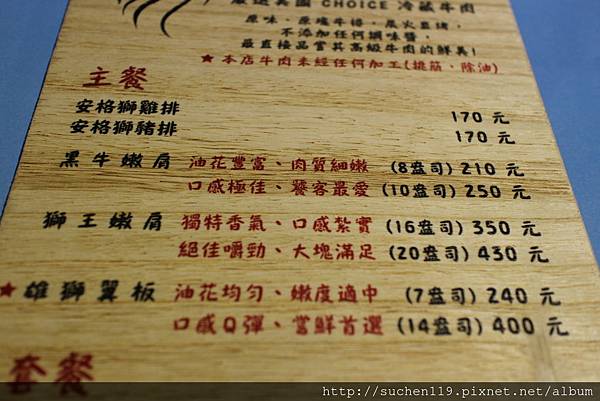 嚴選美國 CHOICE 冷藏牛肉
原味、原塊牛排、炭火直烤,
不添加任何調味醬,
最直接品嘗其高級牛肉的鮮美!
★本店牛肉未經任何加工(挑筋、除油)
主餐
安格獅雞排 170 元
安格獅豬排 170 元
黑牛嫩肩 油花豐富、肉質細嫩 (8盎司) 210 元
口感極佳、饕客最愛 (10盎司) 250 元
獅王嫩肩 獨特香氣、口感紮實 (16盎司) 350 元
絕佳嚼勁、大塊滿足 (20盎司) 430 元
★雄獅翼板 油花均勻、嫩度適中 (7盎司) 240 元
口感Q彈、嘗鮮首選 (14盎司) 400 元
套餐
http://suchen119.pixnet.net/album